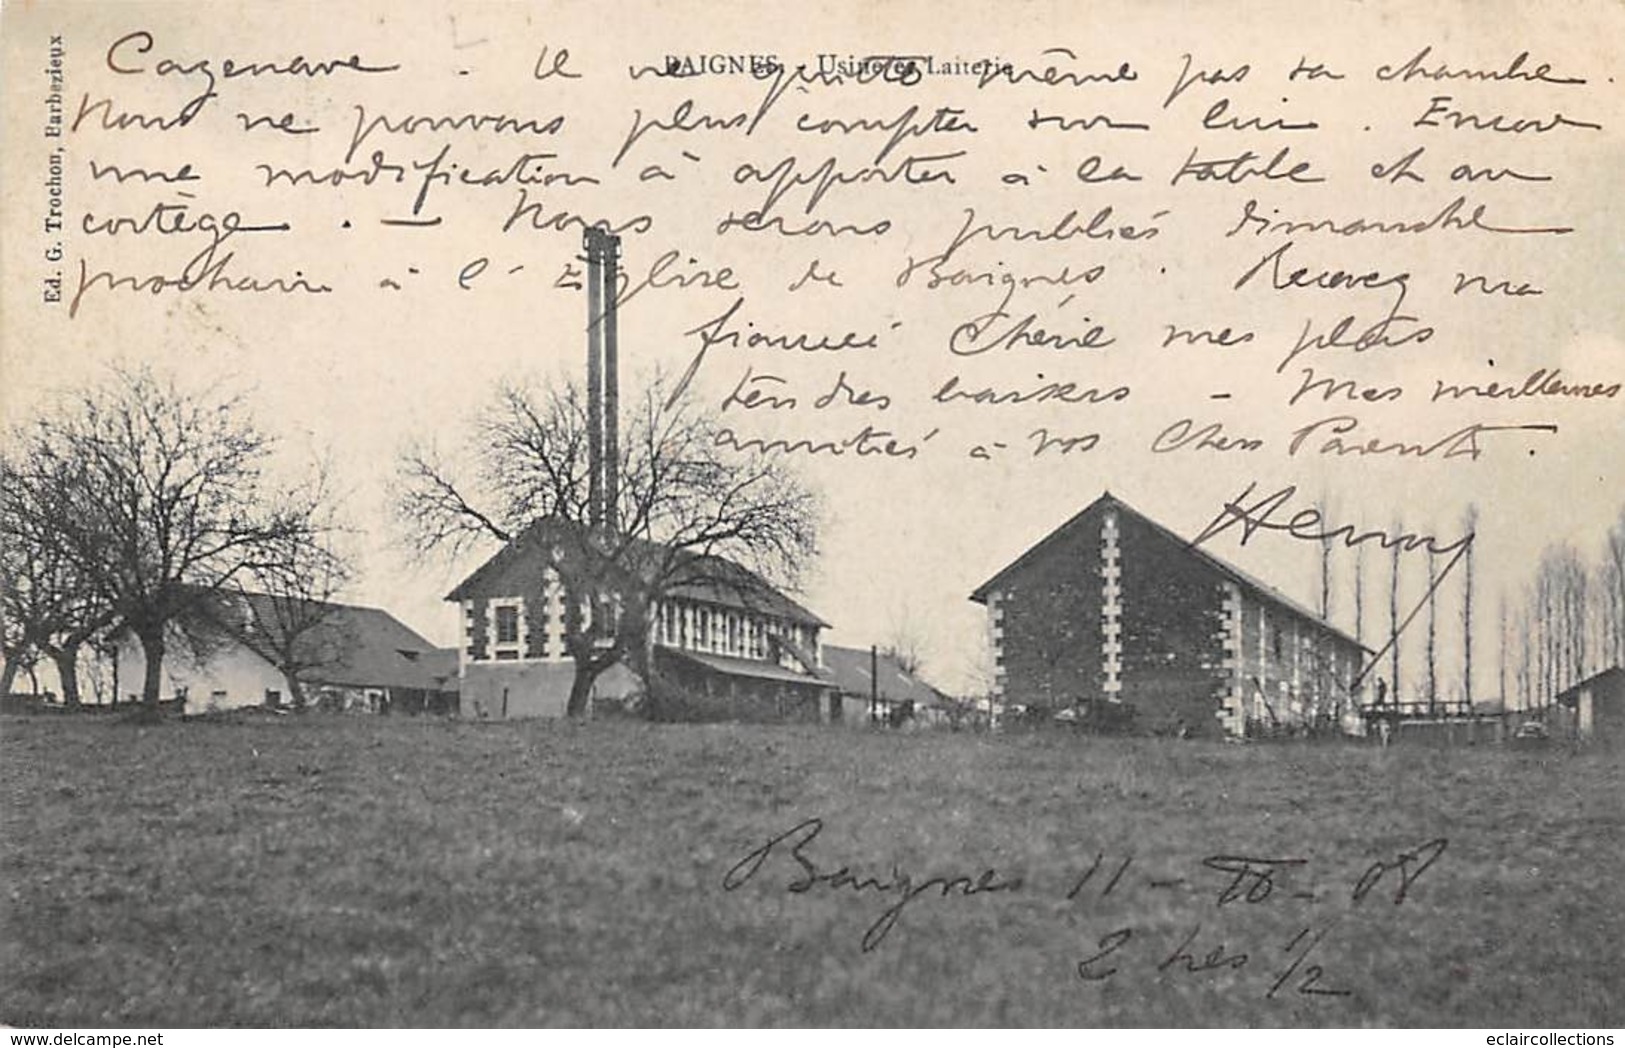 BAIGNES. - Usine et Laiterie
Ed. G. Trochon, Barbezieux
Cazenave. Il ne quitte même pas sa chambre.
Nous ne pouvons plus compter sur lui. Encore
une modification à apporter à la table et au
cortège. - Nous serons publiés dimanche
prochain à l'Eglise de Baignes. Recevez ma
fiancée Chérie mes plus
tendres baisers - Mes meilleures
amitiés à vos Chers Parents.
Henry
Baignes 11 - - 08
2 hes 1/2
delcampe.net
eclaircollections